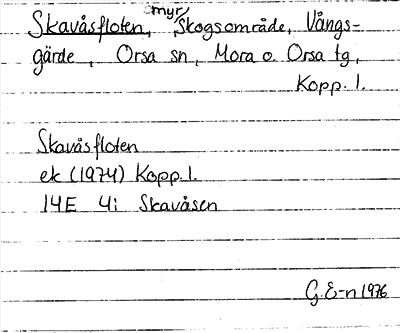 Skavåsfloten, myr, Skogsområde, Vångs-
gärde, Orsa sn, Mora o. Orsa tg,
Kopp. l.
Skavåsfloten
ek (1974) Kopp. l.
14E 4i Skavåsen
G. E-n 1976